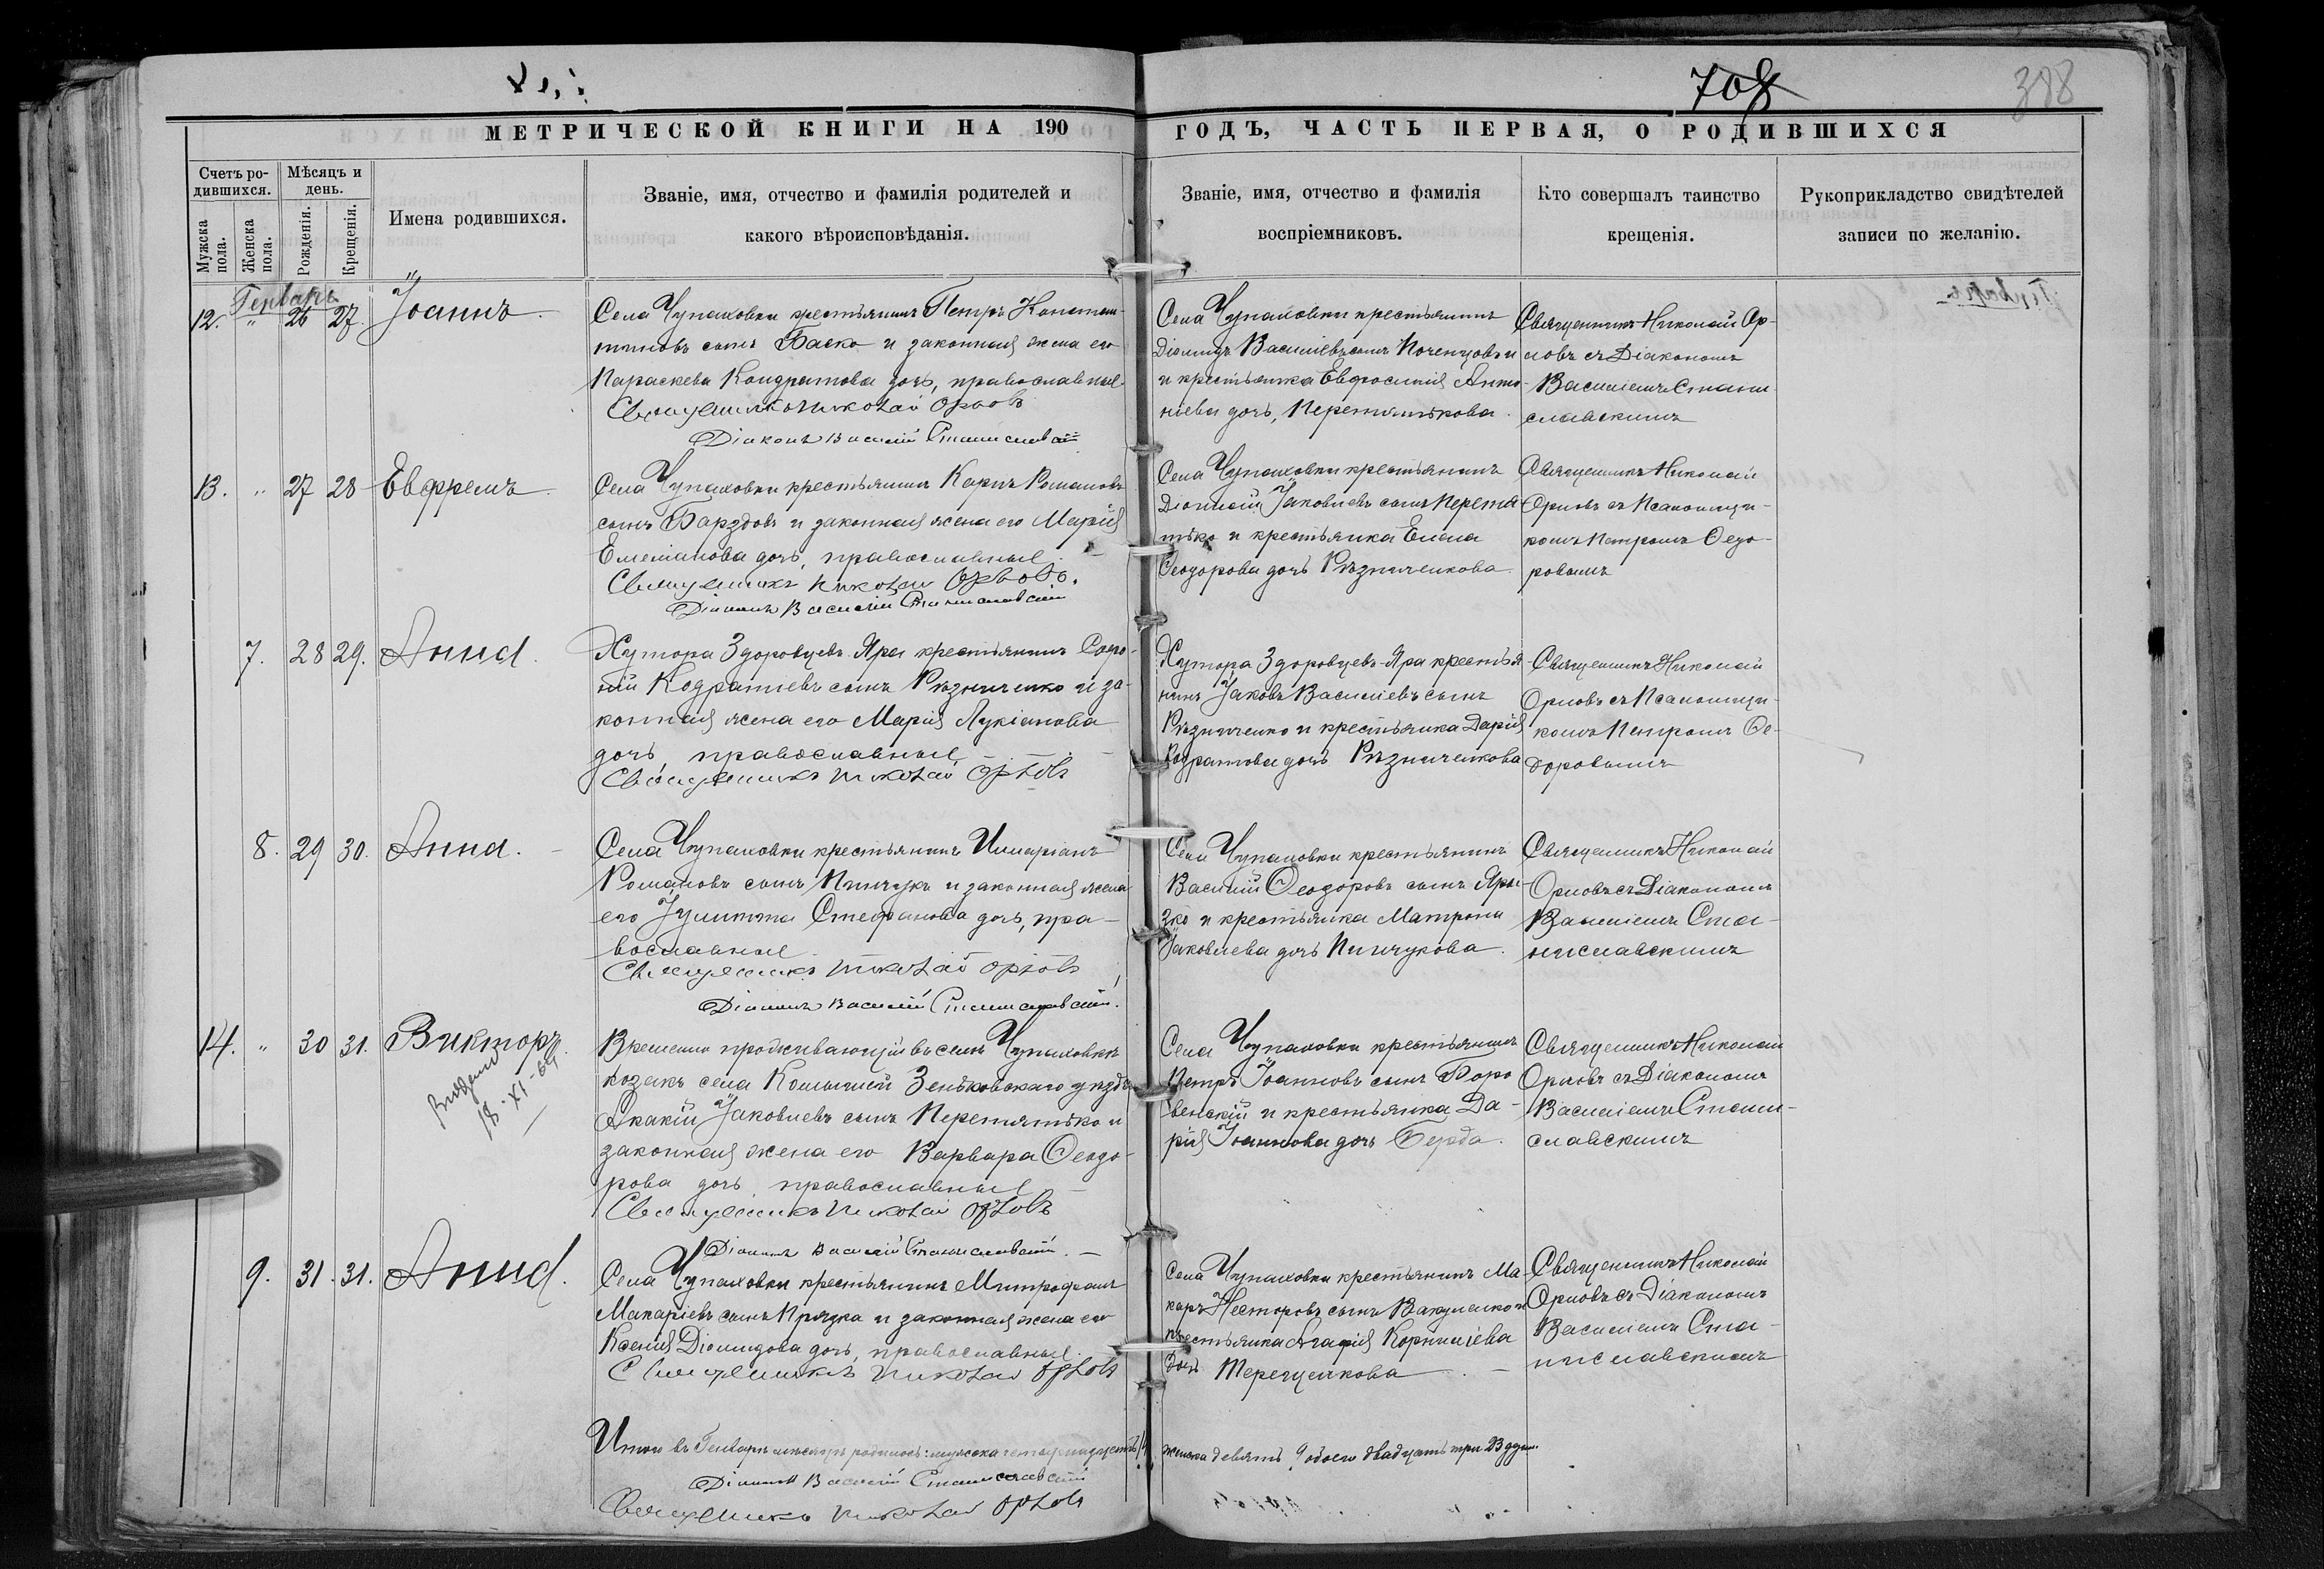 708
388
МЕТРИЧЕСКОЙ КНИГИ НА 190
ГОДЪ, ЧАСТЬ ПЕРВАЯ, О РОДИВШИХСЯ
Счетъ ро-
дившихся.
Мужска
пола.
Женска
пола.
Мѣсяцъ и
день.
Рожденія.
Крещенія.
Имена родившихся.
Званіе, имя, отчество и фамилія родителей и
какого вѣроисповѣданія.
Званіе, имя, отчество и фамилія
воспріемниковъ.
Кто совершалъ таинство
крещенія.
Рукоприкладство свидѣтелей
записи по желанію.
Генварь
12. " 26 27. Іоаннъ.
Села Чупаховки крестьянинъ Петръ Констан-
тиновъ сынъ Баско и законная жена его
Параскева Кондратова дочь, православные.
Священникъ Николай Орловъ
Діаконъ Василій Станиславскій
Села Чупаховки крестьянинъ
Діомидъ Василіевъ сынъ
и крестьянка Евфросинія Анто-
ніева дочь, Перетятькова.
Священникъ Николай Ор-
ловъ съ Діакономъ
Василіемъ Стани-
славскимъ
13. " 27 28 Ефремъ
Села Чупаховки крестьянинъ Карпъ Романовъ
сынъ и законная жена его Марія
Емеліанова дочь, православные.
Священникъ Николай Орловъ.
Діаконъ Василій Станиславскій
Села Чупаховки крестьянинъ
Діонисій Іаковлевъ сынъ Перетя-
тько и крестьянка Елена
Ѳеодорова дочь Рѣзниченкова
Священникъ Николай
Орловъ съ Псаломщи-
комъ Петромъ Ѳедо-
ровымъ
7. 28 29. Анна.
Хутора Здоровцевъ-Яра крестьянинъ Софро-
ній Кодратіевъ сынъ Рѣзниченко и за-
конная жена его Марія Лукіанова
дочь православные
Священникъ Николай Орловъ
Хутора Здоровцевъ-Яра крестья-
нинъ Іаковъ Василіевъ сынъ
Рѣзниченко и крестьянка Дарія
Кодратова дочь Рѣзниченкова
Священникъ Николай
Орловъ съ Псаломщи-
комъ Петромъ Ѳе-
доровымъ
8. 29 30. Анна.
Села Чупаховки крестьянинъ Иларіонъ
Романовъ сынъ Пинчукъ и законная жена
его Іулитта Стефанова дочь, пра-
вославные
Священникъ Николай Орловъ
Діаконъ Василій Станиславскій.
Села Чупаховки крестьянинъ
Василій Ѳеодоровъ сынъ
и крестьянка Матрона
Іаковлева дочь Пинчукова.
Священникъ Николай
Орловъ съ Діакономъ
Василіемъ Ста-
ниславскимъ
14. " 30 31. Викторъ.
18-XI-69
Временно проживающій въ селѣ Чупаховкѣ
козакъ села Зеньковскаго уѣзда
Акакій Іаковлевъ сынъ Перетятько и
законная жена его Варвара Ѳеодо-
рова дочь, православные
Священникъ Николай Орловъ
Діаконъ Василій Станиславскій.
Села Чупаховки крестьянинъ
Петръ Іоанновъ сынъ Боро-
венскій и крестьянка Да-
рія Іоаннова дочь
Священникъ Николай
Орловъ съ Діакономъ
Василіемъ Стани-
славскимъ
9. 31. 31. Анна.
Села Чупаховки крестьянинъ Митрофанъ
Макаріевъ сынъ Прядка и законная жена его
Ксенія Діомидова дочь, православные.
Священникъ Николай Орловъ
Села Чупаховки крестьянинъ Ма-
каръ Несторовъ сынъ Вакуленко и
крестьянка Агафія Корниліева
дочь Терещенкова
Священникъ Николай
Орловъ съ Діакономъ
Василіемъ Ста-
ниславскимъ
Итого въ Генварѣ мѣсяцѣ родилось: мужска четырнадцать 14
женска девять 9 обоего двадцать три 23 душъ.
Діаконъ Василій Станиславскій
Священникъ Николай Орловъ